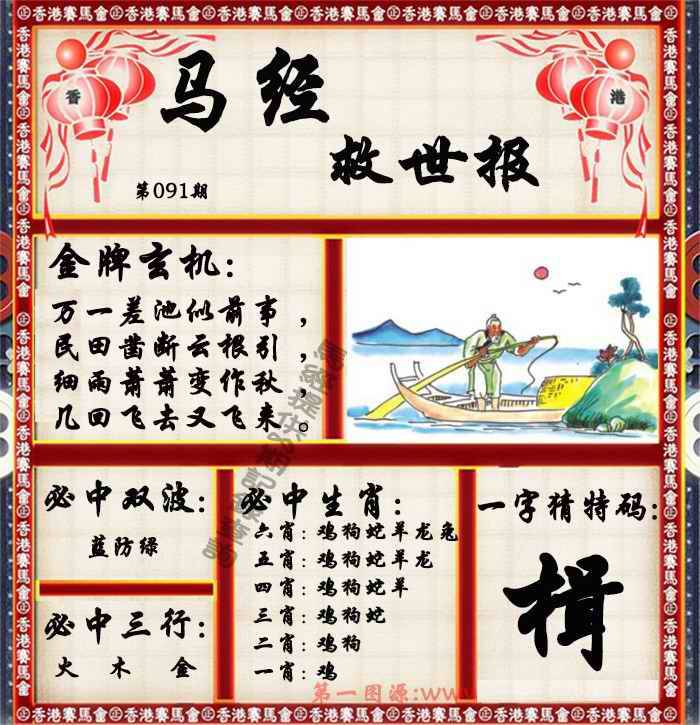 香港賽馬會
香 港
马经
救世报
第091期
金牌玄机：
万一差池似前事，
民田凿断云根引，
细雨萧萧变作秋，
几回飞去又飞来。
必中双波：
蓝防绿
必中三行：
火 木 金
必中生肖：
六肖：鸡狗蛇羊龙兔
五肖：鸡狗蛇羊龙
四肖：鸡狗蛇羊
三肖：鸡狗蛇
二肖：鸡狗
一肖：鸡
一字猜特码：
揖
第一图源:www